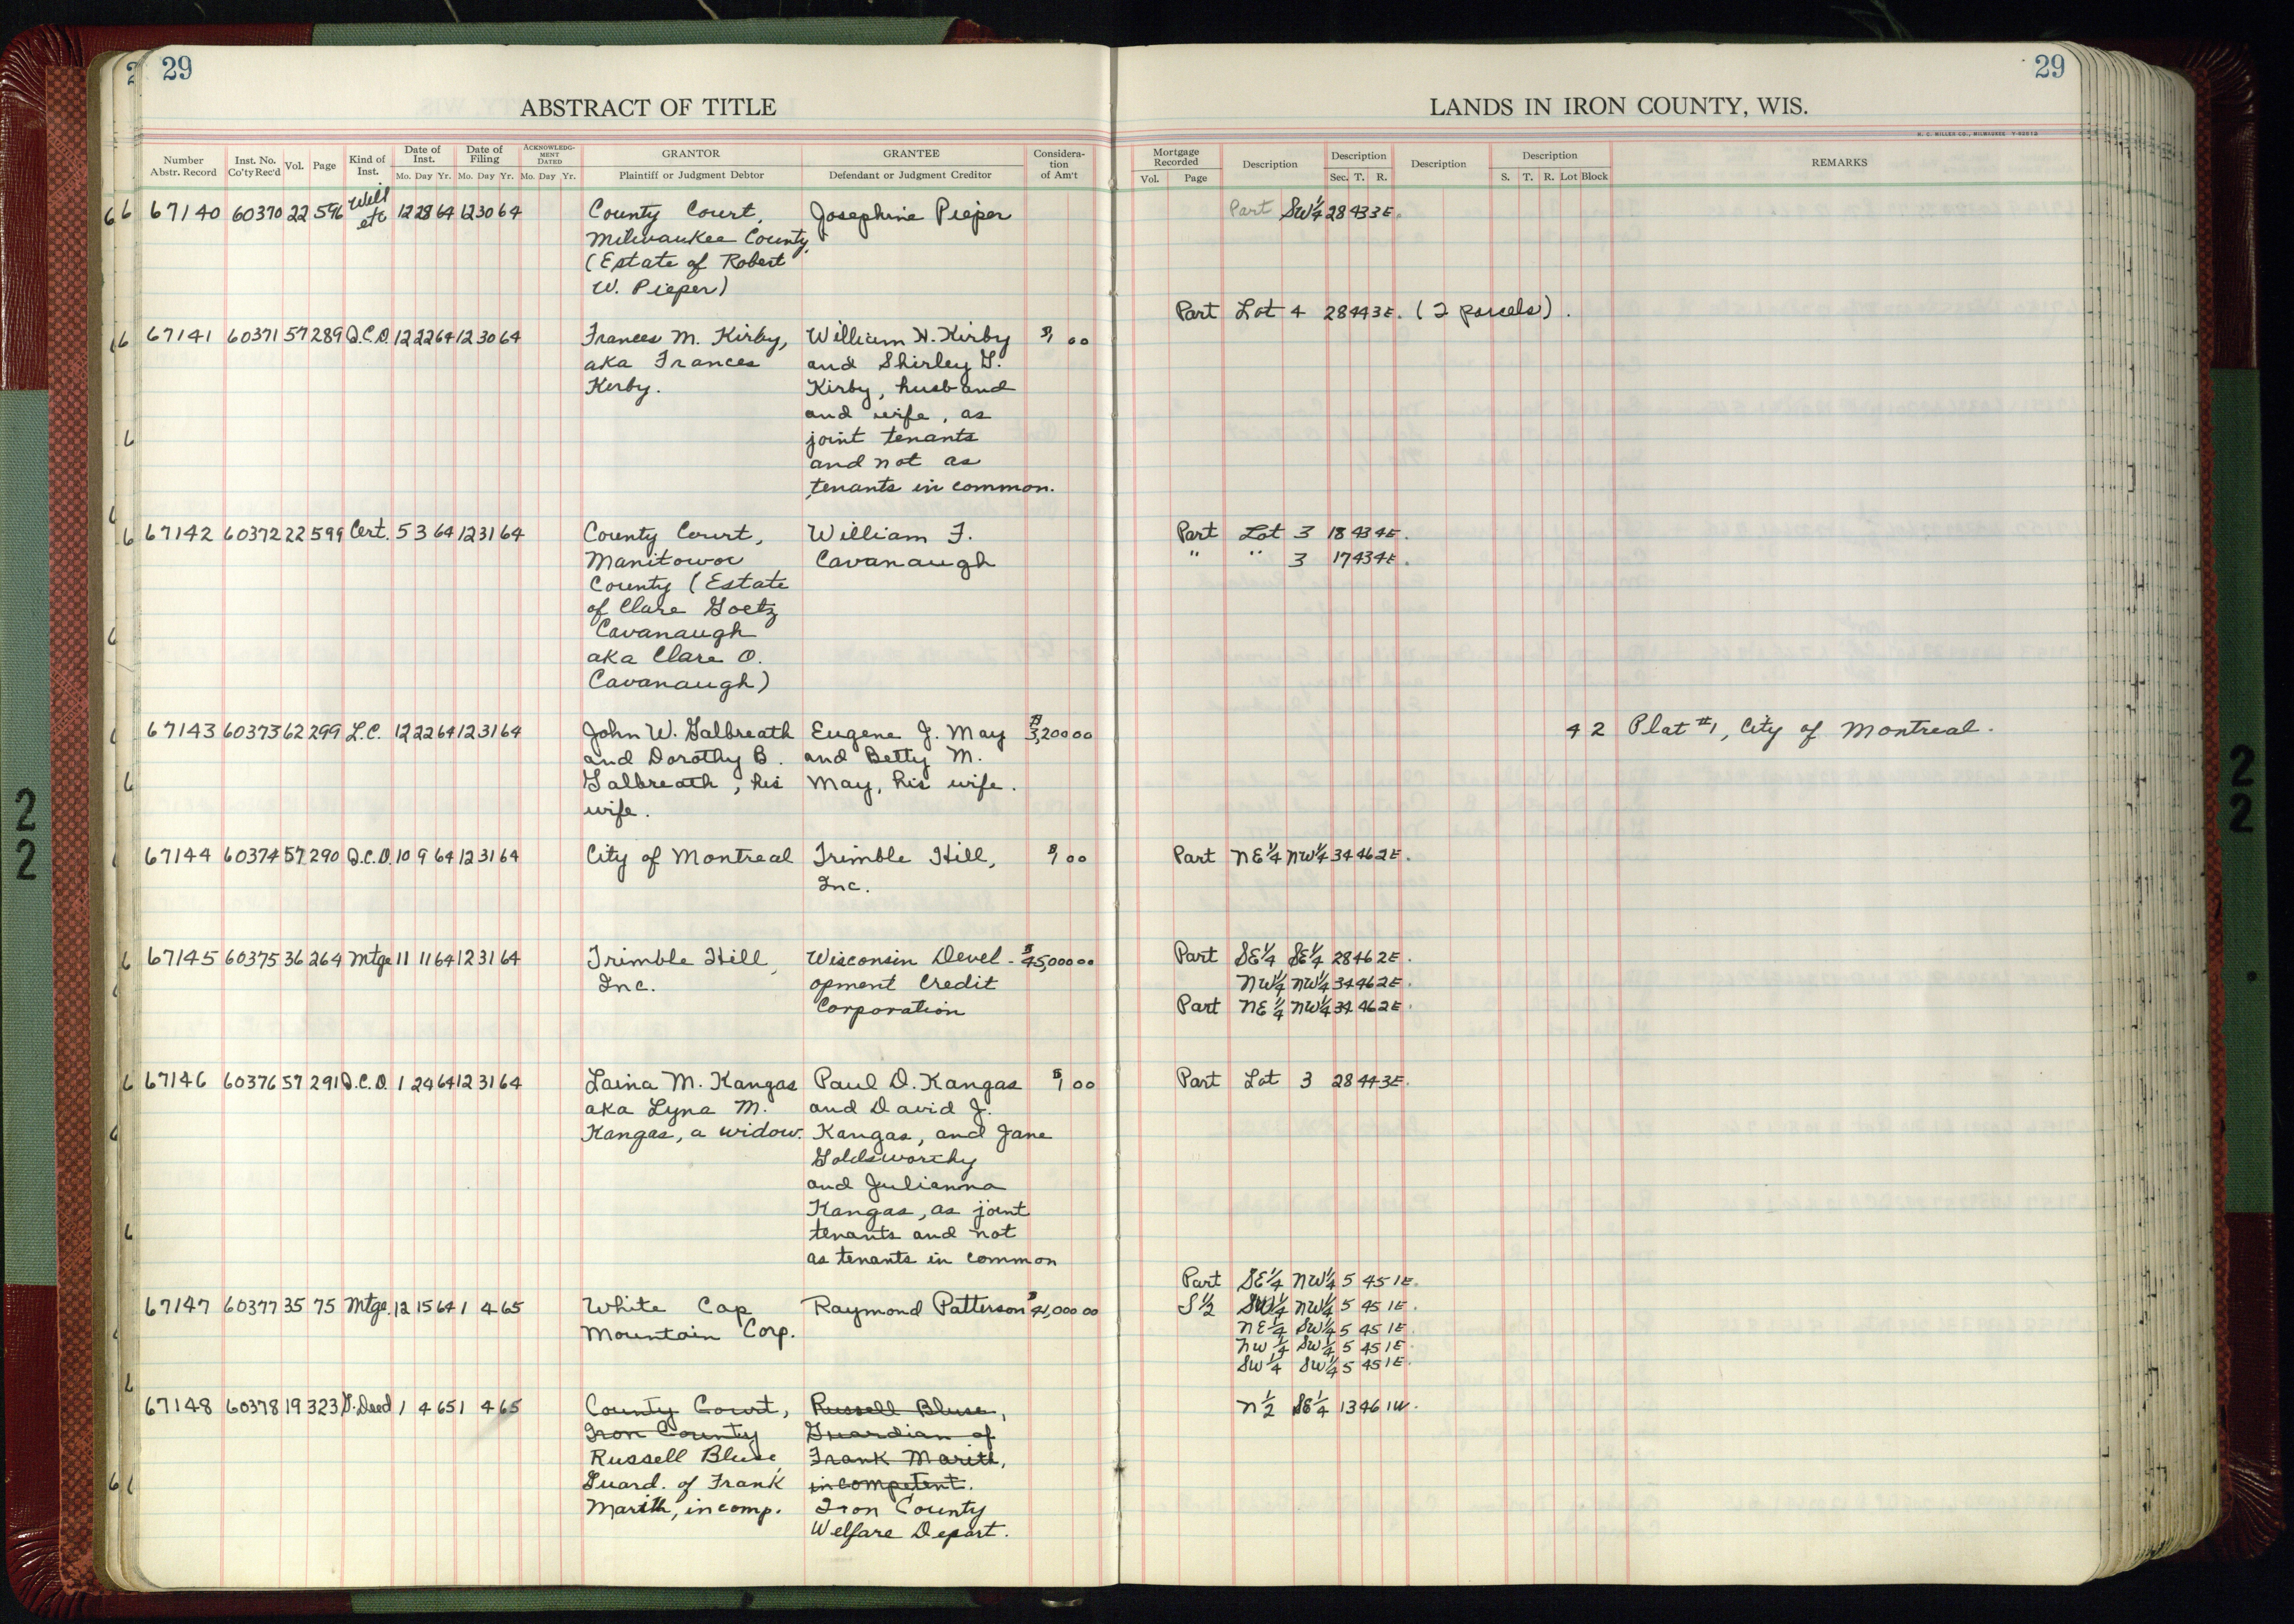 29
ABSTRACT OF TITLE
Number Abstr. Record Inst. No. Co'ty Rec'd Vol. Page Kind of Inst. Date of Inst. Mo. Day Yr. Date of Filing Mo. Day Yr. ACKNOWLEDG-MENT DATED Mo. Day Yr. GRANTOR Plaintiff or Judgment Debtor GRANTEE Defendant or Judgment Creditor Considera-tion of Am't
67140 60370 22 596 Will etc 12 28 64 12 30 64 County Court, Josephine Pieper
Milwaukee County,
(Estate of Robert
W. Pieper)
67141 60371 57 289 Q.C.D. 12 22 64 12 30 64 Frances M. Kirby, William H. Kirby $1 00
aka Frances and Shirley G.
Kirby. Kirby, husband
and wife, as
joint tenants
and not as
tenants in common.
67142 60372 22 599 Cert. 5 3 64 12 31 64 County Court, William F.
Manitowoc Cavanaugh
County (Estate
of Clare Goetz
Cavanaugh
aka Clare O.
Cavanaugh)
67143 60373 62 299 L.C. 12 22 64 12 31 64 John W. Galbreath Eugene J. May $3,200 00
and Dorothy B. and Betty M.
Galbreath, his May, his wife.
wife.
67144 60374 57 290 Q.C.D. 10 9 64 12 31 64 City of Montreal Trimble Hill, $1 00
Inc.
67145 60375 36 264 Mtge 11 11 64 12 31 64 Trimble Hill, Wisconsin Devel- $45,000 00
Inc. opment Credit
Corporation
67146 60376 57 291 Q.C.D. 1 24 64 12 31 64 Laina M. Kangas Paul D. Kangas $1 00
aka Lyna M. and David J.
Kangas, a widow. Kangas, and Jane
Goldsworthy
and Julianna
Kangas, as joint
tenants and not
as tenants in common
67147 60377 35 75 Mtge. 12 15 64 1 4 65 White Cap Raymond Patterson $41,000 00
Mountain Corp.
67148 60378 19 323 G. Deed 1 4 65 1 4 65 County Court, Russell Bluse,
Iron County Guardian of
Russell Bluse, Frank Marith,
Guard. of Frank incompetent.
Marith, incomp. Iron County
Welfare Depart.
29
LANDS IN IRON COUNTY, WIS.
H. C. MILLER CO., MILWAUKEE
Mortgage Recorded Vol. Page Description Description Sec. T. R. Description Description S. T. R. Lot Block REMARKS
Part SW¼ 28 43 3E.
Part Lot 4 28 44 3E. (2 parcels).
Part Lot 3 18 43 4E.
" " 3 17 43 4E.
4 2 Plat #1, City of Montreal.
Part NE¼ NW¼ 34 46 2E.
Part SE¼ SE¼ 28 46 2E.
NW¼ NW¼ 34 46 2E.
Part NE¼ NW¼ 34 46 2E.
Part Lot 3 28 44 3E.
Part SE¼ NW¼ 5 45 1E.
S½ SW¼ NW¼ 5 45 1E.
NE¼ SW¼ 5 45 1E.
NW¼ SW¼ 5 45 1E.
SW¼ SW¼ 5 45 1E.
N½ SE¼ 13 46 1W.
22
22